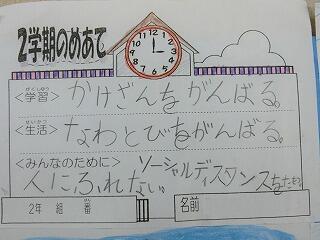 2学期のめあて
<学習> かけざんをがんばる。
<生活> なわとびをがんばる。
<みんなのために> ソーシャルディスタンスをたもつ
人にふれない。
2年 組 番 名前